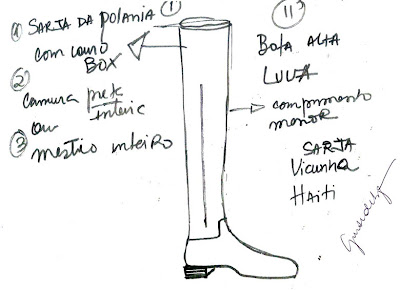 ① SARJA DA POLANIA ①
com couro
BOX
②
camura preta
inteira
ou
③ mestiço inteiro
11
Bota ALTA
LUVA
comprimento
menor
SARJA
Vicunha
Haiti